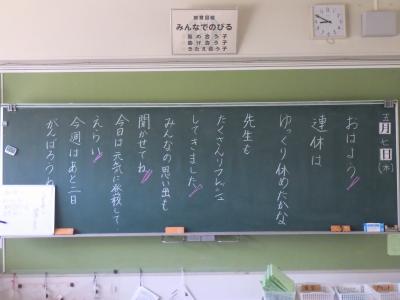 教育目標
みんなでのびる
認め合う子
助け合う子
きたえ合う子
五月七日(木)
おはよう。
連休は
ゆっくり休めたかな
先生も
たくさんリフレッシュ
してきました。
みんなの思い出も
聞かせてね。
今日は元気に登校して
えらい。
今週はあと二日
がんばろうね